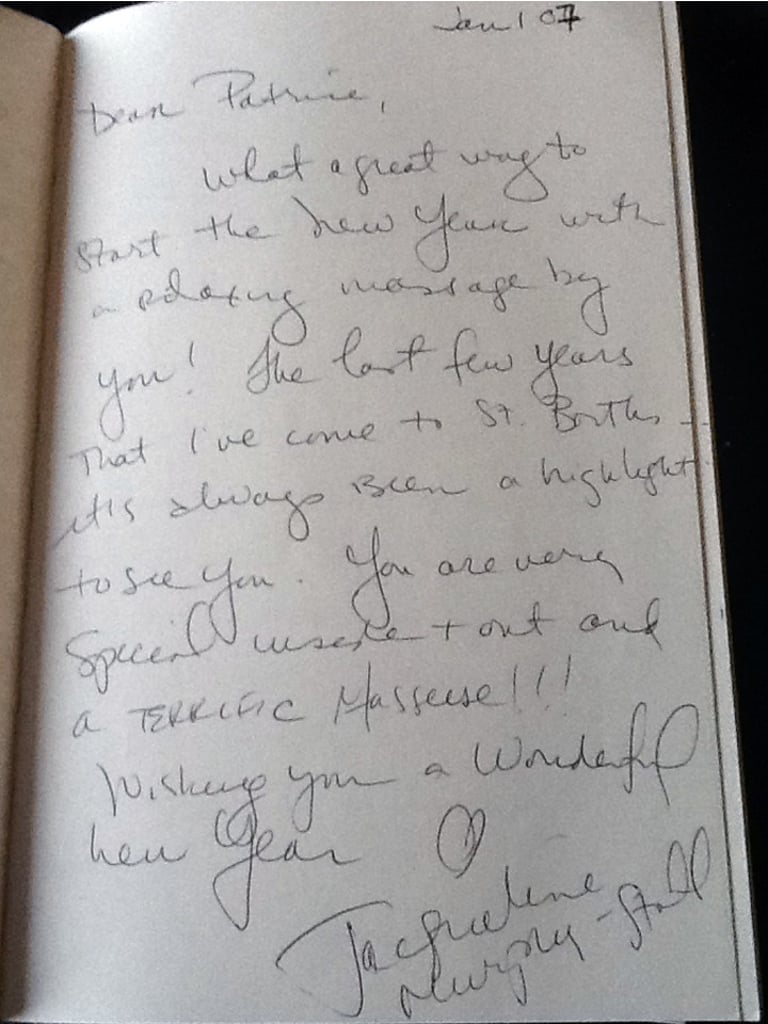 Jan 1 07
Dear Patricie,
What a great way to
start the new year with
a relaxing massage by
you! The last few years
That I've come to St. Barths -
it's always Been a highlight
to see you. You are very
special inside + out and
a TERRIFIC Masseuse!!!
Wishing you a Wonderful
new Year ♡
Jacqueline
Murphy-Stahl